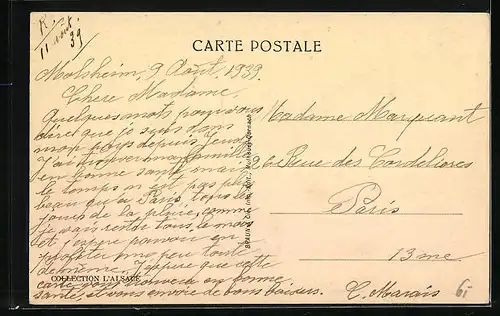 R.
11 août
39
CARTE POSTALE
Molsheim 9 Août, 1939.
Chere Madame,
Quelques mots pour vous
dire que je suis dans
mon pays depuis jeudi
J'ai trouver ma famille
en bonne santé mais
le temps n'est pas plus
beau qu'a Paris, tous les
jours de la pluie, comme
je vais rester tous le mois
et j'espre pouvoir en
profiter une peu tout
de meme. J'espere que cette
carte vous trouvera en bonne
santé, et vous envoie de bons baisers.
COLLECTION L'ALSACE
BRAUN & Cie,
Madame Marquant
26 Rue des Cordelieres
Paris
13me
C. Marais
6i